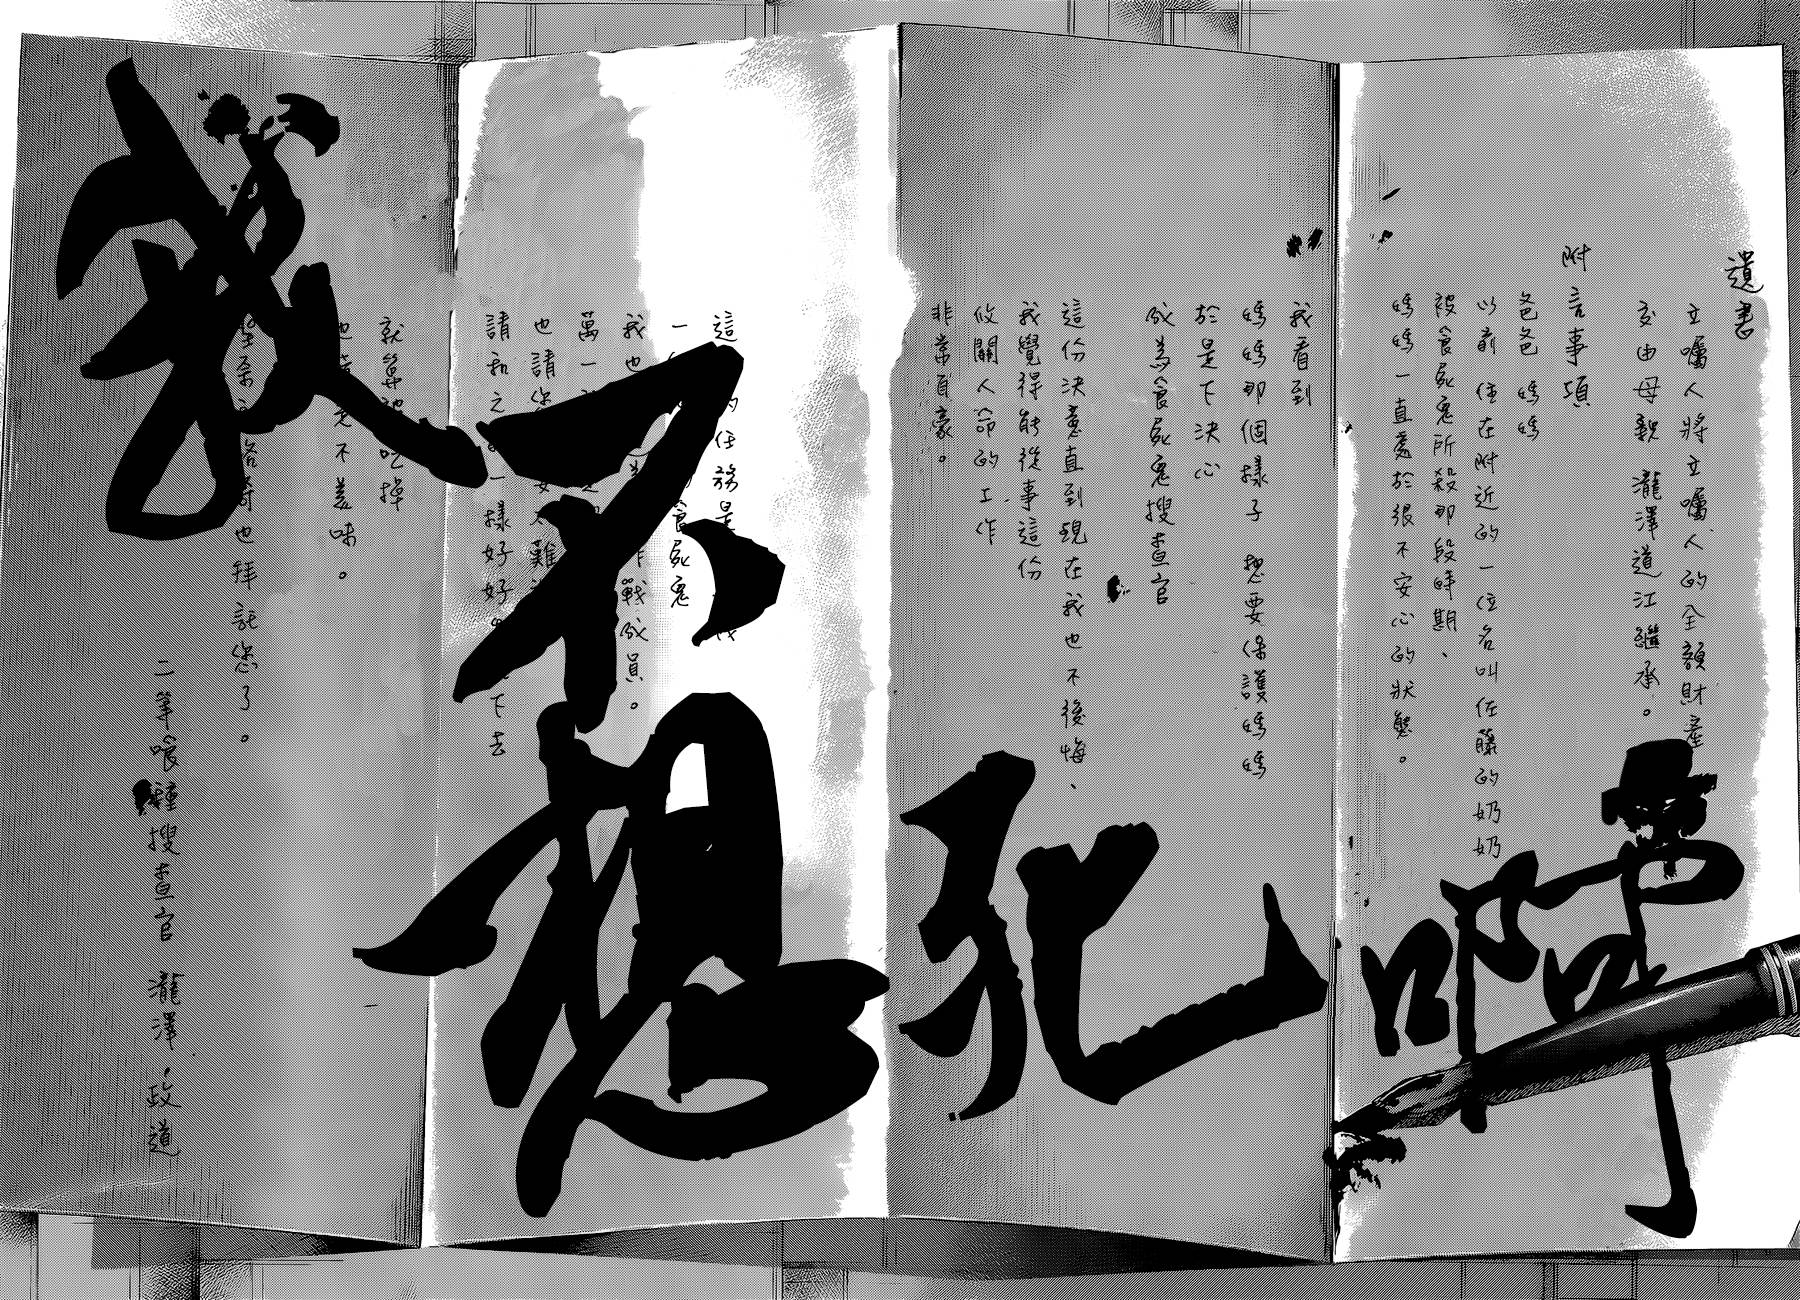 遺書
立囑人將立囑人的全額財產
交由母親 瀧澤道江繼承。
附言事項
爸爸 媽媽
以前住在附近的一位名叫佐藤的奶奶
被食屍鬼所殺那段時期、
媽媽一直處於很不安心的狀態。
我看到
媽媽那個樣子 想要保護媽媽
於是下決心
成為食屍鬼搜查官
這份決意直到現在我也不後悔、
我覺得能從事這份
攸關人命的工作
非常自豪。
這 的任務是
一 食屍鬼
我也 作戰成員。
萬一
也請 難
請和之 一樣好好 下去
就算被吃掉
也 不美味。
也拜託您了。
二等喰種搜查官 瀧澤政道
我不想死啊